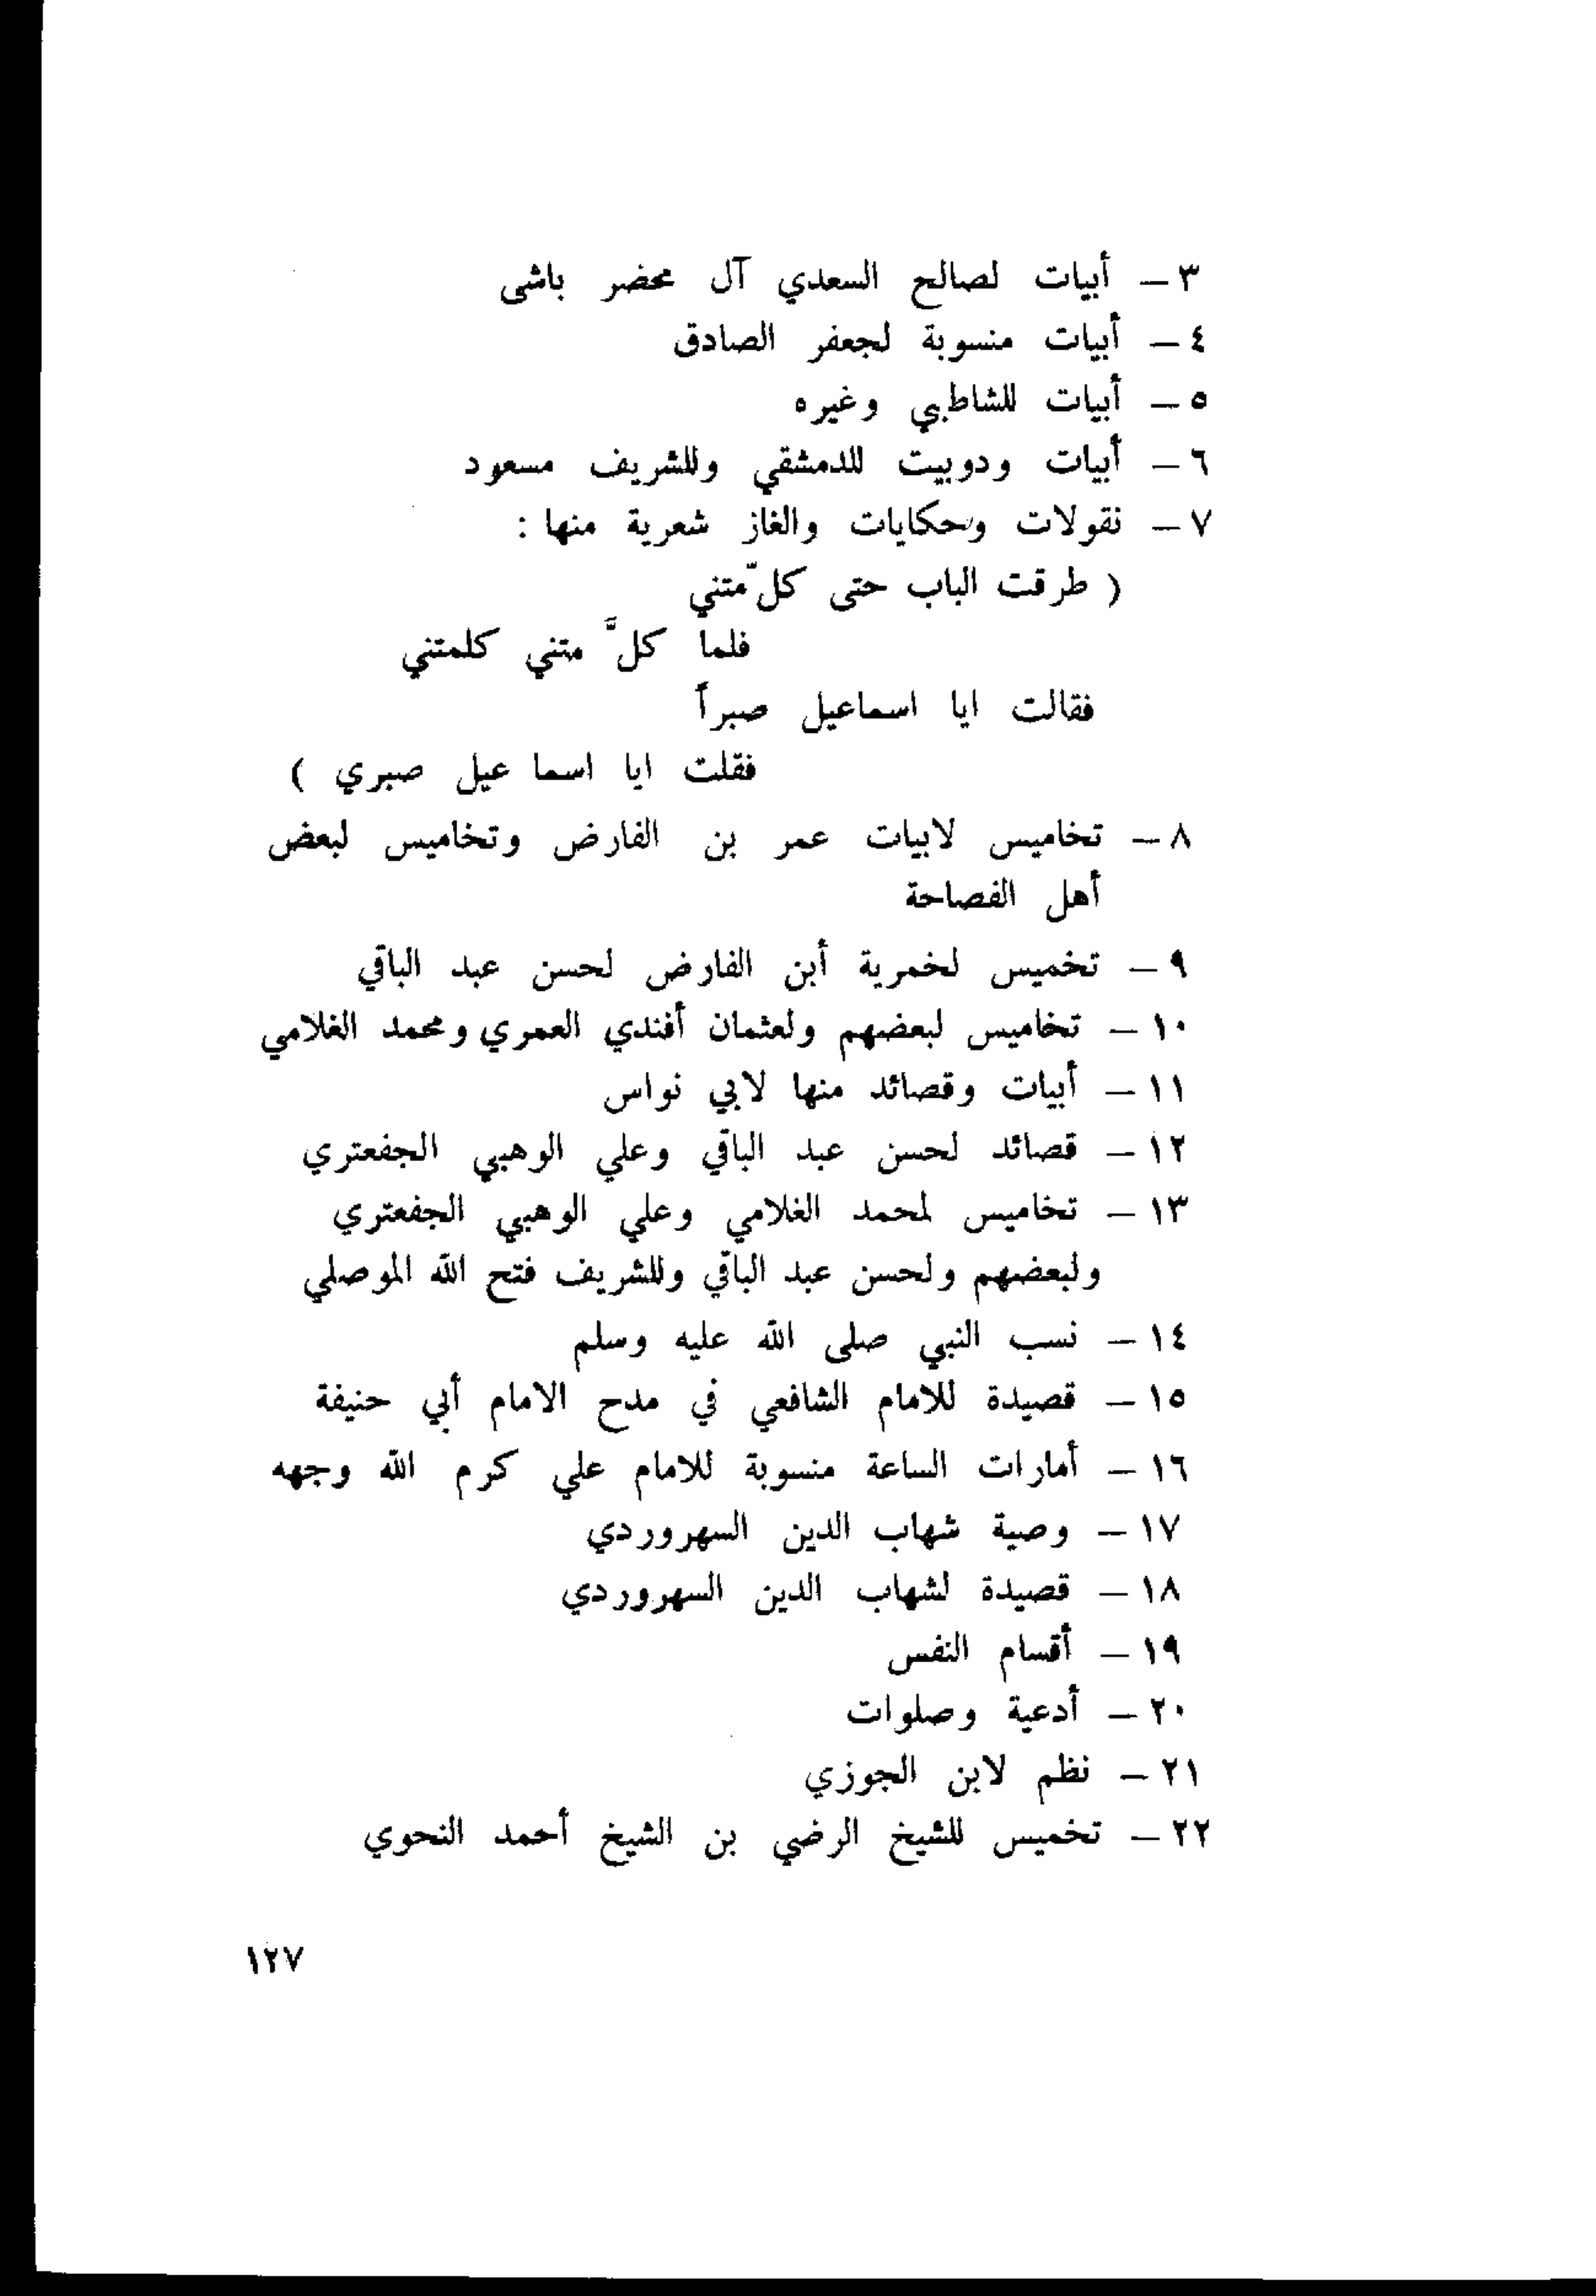 ٣ – أبيات لصالح السعدي آل محضر باشى
٤ – أبيات منسوبة لجعفر الصادق
٥ – أبيات للشاطبي وغيره
٦ – أبيات ودوبيت للدمشقي وللشريف مسعود
٧ – نقولات وحكايات والغاز شعرية منها :
( طرقت الباب حتى كلّ متني
فلما كلَّ متني كلمتني
فقالت ايا اسماعيل صبراً
فقلت ايا اسما عيل صبري )
٨ – تخاميس لابيات عمر بن الفارض وتخاميس لبعض
أهل الفصاحة
٩ – تخميس لخمرية أبن الفارض لحسن عبد الباقي
١٠ – تخاميس لبعضهم ولعثمان أفندي العمري ومحمد الغلامي
١١ – أبيات وقصائد منها لابي نواس
١٢ – قصائد لحسن عبد الباقي وعلي الوهبي الجفعتري
١٣ – تخاميس لمحمد الغلامي وعلي الوهبي الجفعتري
ولبعضهم ولحسن عبد الباقي وللشريف فتح الله الموصلي
١٤ – نسب النبي صلى الله عليه وسلم
١٥ – قصيدة للامام الشافعي في مدح الامام أبي حنيفة
١٦ – أمارات الساعة منسوبة للامام علي كرم الله وجهه
١٧ – وصية شهاب الدين السهروردي
١٨ – قصيدة لشهاب الدين السهروردي
١٩ – أقسام النفس
٢٠ – أدعية وصلوات
٢١ – نظم لابن الجوزي
٢٢ – تخميس للشيخ الرضي بن الشيخ أحمد النحوي
١٢٧